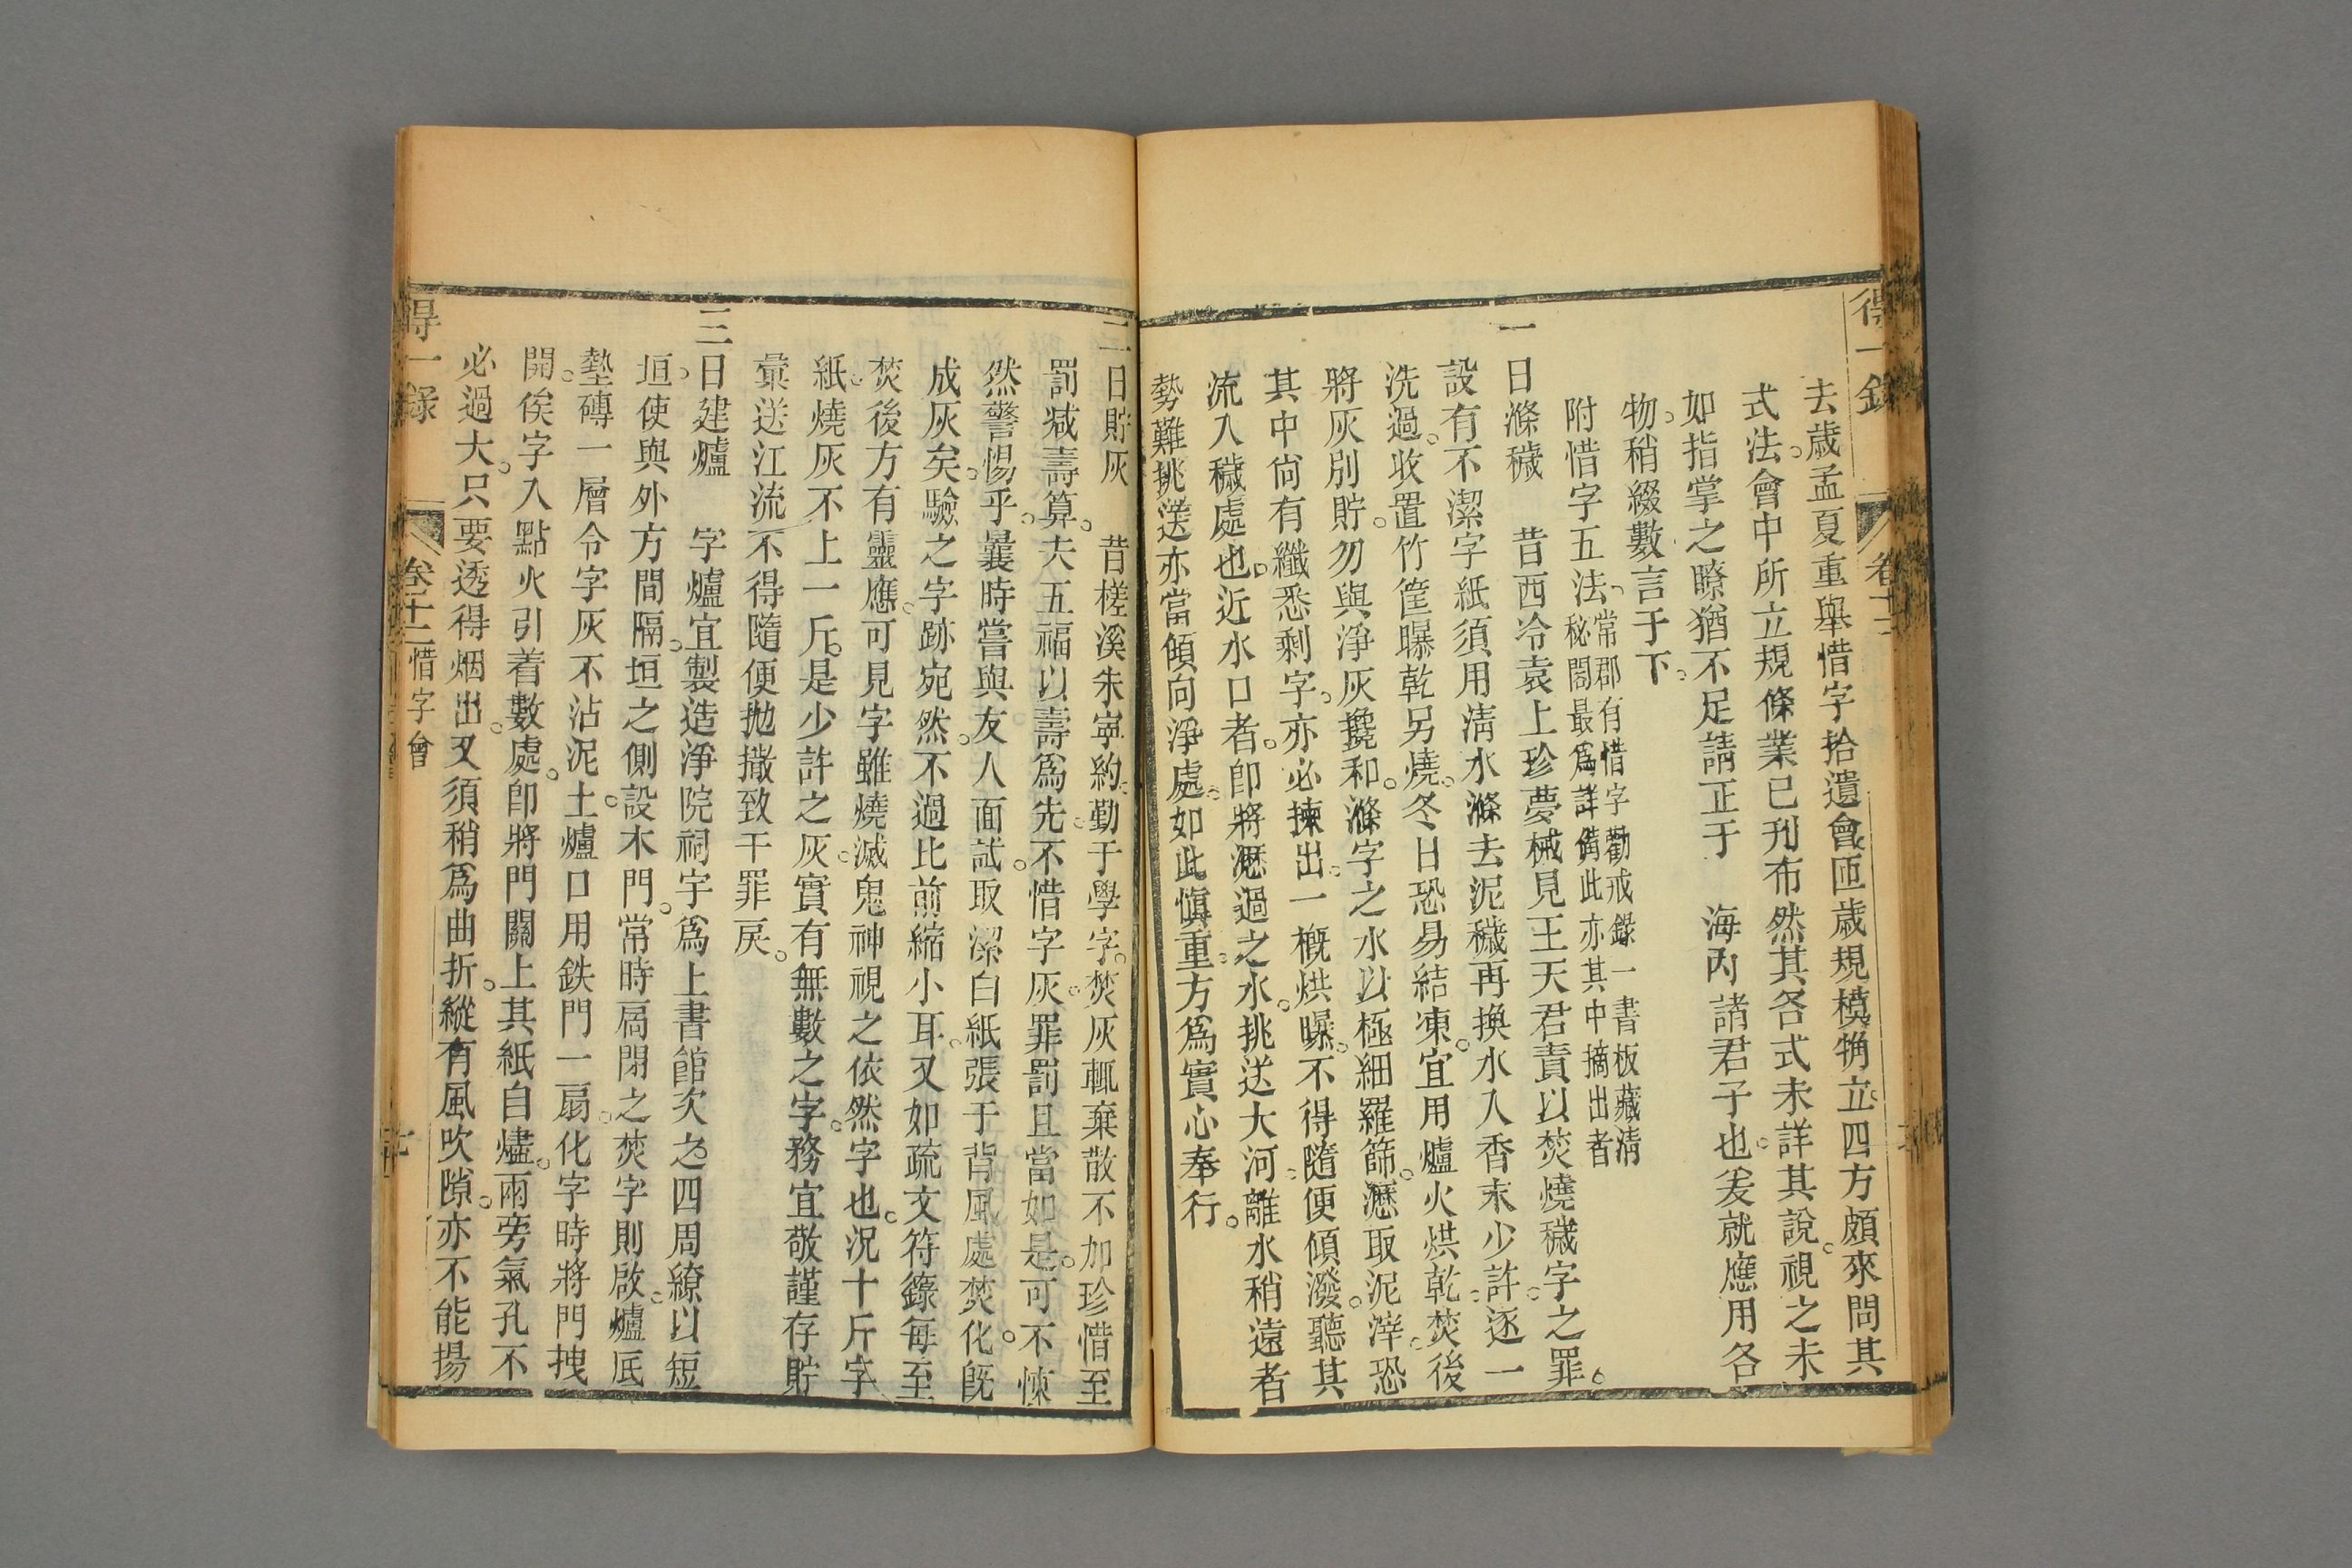 得一錄
卷十二
去歲孟夏重舉惜字拾遺會匝歲規模觕立四方頗來問其
式法會中所立規條業已刋布然其各式未詳其說視之未
如指掌之瞭猶不足請正于 海內諸君子也爰就應用各
物稍綴數言于下
附惜字五法
常郡有惜字勸戒錄一書板藏清
秘閣最爲詳備此亦其中摘出者
一曰滌穢 昔西泠袁上珍夢械見王天君責以焚燒穢字之罪
設有不潔字紙須用淸水滌去泥穢再換水入香末少許逐一
洗過收置竹筐曝乾另燒冬日恐易結凍宜用爐火烘乾焚後
將灰別貯勿與淨灰攙和滌字之水以極細羅篩瀝取泥滓恐
其中尙有纖悉剩字亦必揀出一槪烘曝不得隨便傾潑聽其
流入穢處也近水口者卽將瀝過之水挑送大河離水稍遠者
勢難挑送亦當傾向淨處如此愼重方爲實心奉行
二曰貯灰 昔槎溪朱寧約勤于學字焚灰輒棄散不加珍惜至
罰减壽算夫五福以壽爲先不惜字灰罪罰且當如是可不悚
然警惕乎曩時嘗與友人面試取潔白紙張于背風處焚化旣
成灰矣驗之字跡宛然不過比前縮小耳又如疏文符籙每至
焚後方有靈應可見字雖燒滅鬼神視之依然字也況十斤字
紙燒灰不上一斤是少許之灰實有無數之字務宜敬謹存貯
彙送江流不得隨便拋撒致干罪戾
三曰建爐 字爐宜製造淨院祠宇爲上書館次之四周繚以短
垣使與外方間隔垣之側設木門常時扃閉之焚字則啟爐底
墊磚一層令字灰不沾泥土爐口用鉄門一扇化字時將門拽
開俟字入點火引着數處卽將門關上其紙自燼兩旁氣孔不
必過大只要透得烟出又須稍爲曲折縱有風吹隙亦不能揚
得一錄
卷十二 惜字會